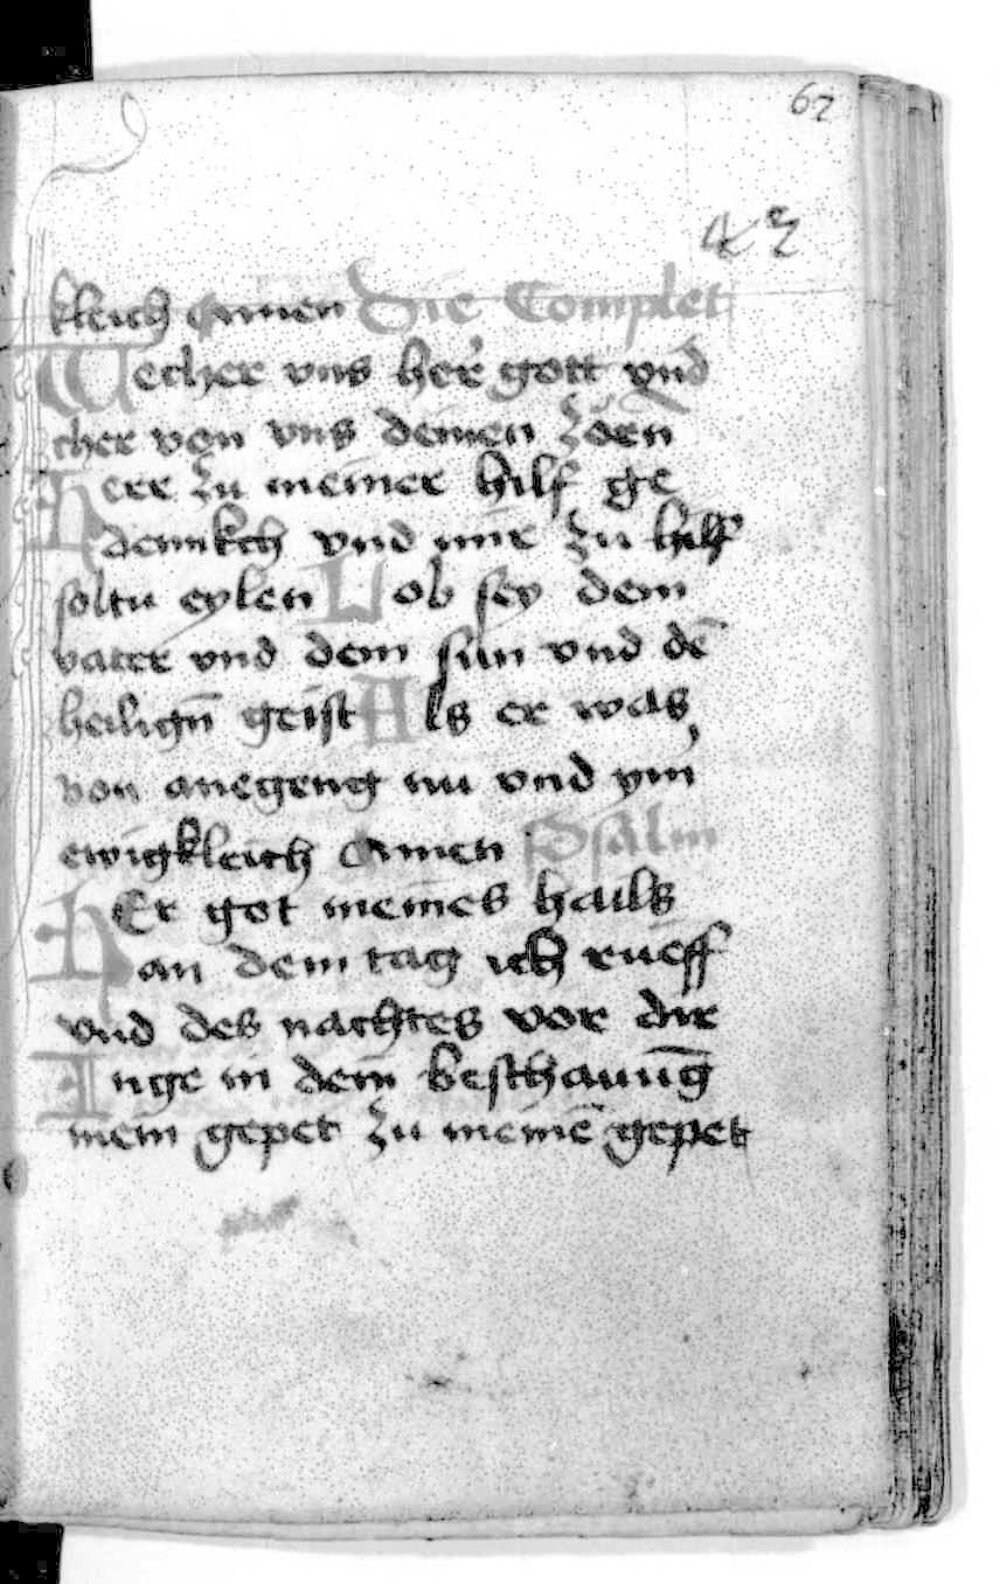 67
42
kleich Amen Die Complet
Wecher vns her gott vnd
cher von vns deinen zorn
Herr zu meiner hilf ge
dennkch vnd mir zu hilf
soltu eylen Lob sey dem
vater vnd dem sun vnd dē
heilign̄ geist Als er was
von anegeng nu vnd ym̄
ewigkleich Amen Psalm
HEr got meines hails
an dem tag ich rueff
vnd des nachtes vor dir
Inge in dem beschauūg
mein gepet zu meinē gepet